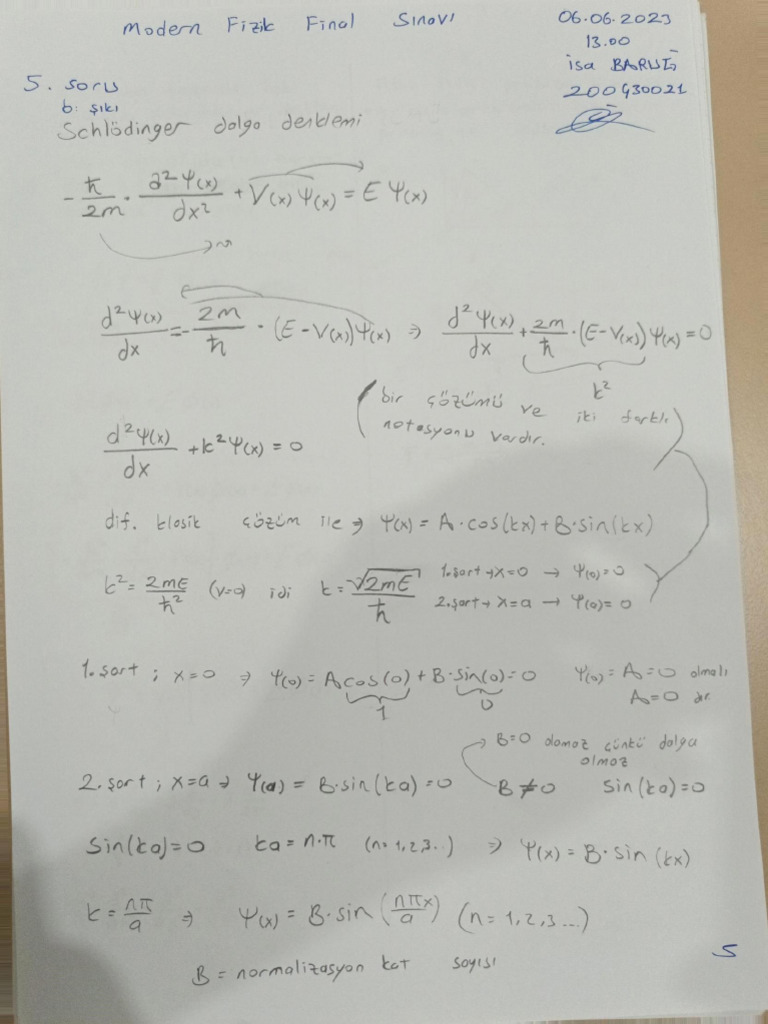 Modern Fizik Final Sınavı
06.06.2023
13.00
isa BARUĞ
200430021
5. soru
b: şıkı
Schlödinger dalga denklemi
-ħ/2m · ∂²Ψ(x)/dx² + V(x) Ψ(x) = E Ψ(x)
d²Ψ(x)/dx = -2m/ħ · (E-V(x))Ψ(x) ⇒ d²Ψ(x)/dx + 2m/ħ · (E-V(x))Ψ(x) = 0
k²
(bir çözümü ve iki farklı
notasyonu vardır.)
d²Ψ(x)/dx + k²Ψ(x) = 0
dif. klasik çözüm ile ⇒ Ψ(x) = A·cos(kx)+B·sin(kx)
k² = 2mE/ħ² (v=0) idi k = √2mE/ħ
1. şart → x=0 → Ψ(0)=0
2. şart → x=a → Ψ(0)=0
1. şart ; x=0 ⇒ Ψ(0) = A cos(0) + B·sin(0) = 0 Ψ(0) = A = 0 olmalı
1 0 A=0 dır
B=0 olamaz çünkü dalga
olmaz
2. şart ; x=a ⇒ Ψ(a) = B·sin(ka) = 0 B≠0 sin(ka)=0
sin(ka)=0 ka = n·π (n=1,2,3..) ⇒ Ψ(x) = B·sin(kx)
k = nπ/a ⇒ Ψ(x) = B·sin(nπx/a) (n=1,2,3...)
B = normalizasyon kat sayısı
5